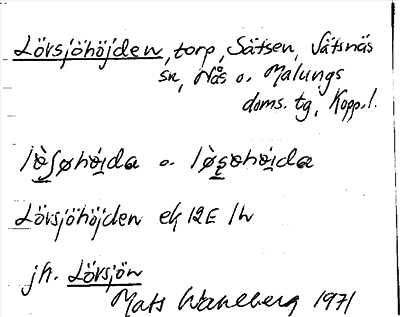 Lövsjöhöjden, torp, Sätsen, Sätsnäs
sn, Nås o. Malungs
doms. tg, Kopp. l.
lø̀ʃøhøi̯da o. lø̀søhøi̯da
Lövsjöhöjden ek 12E 1h
jfr. Lövsjön
Mats Wahlberg 1971